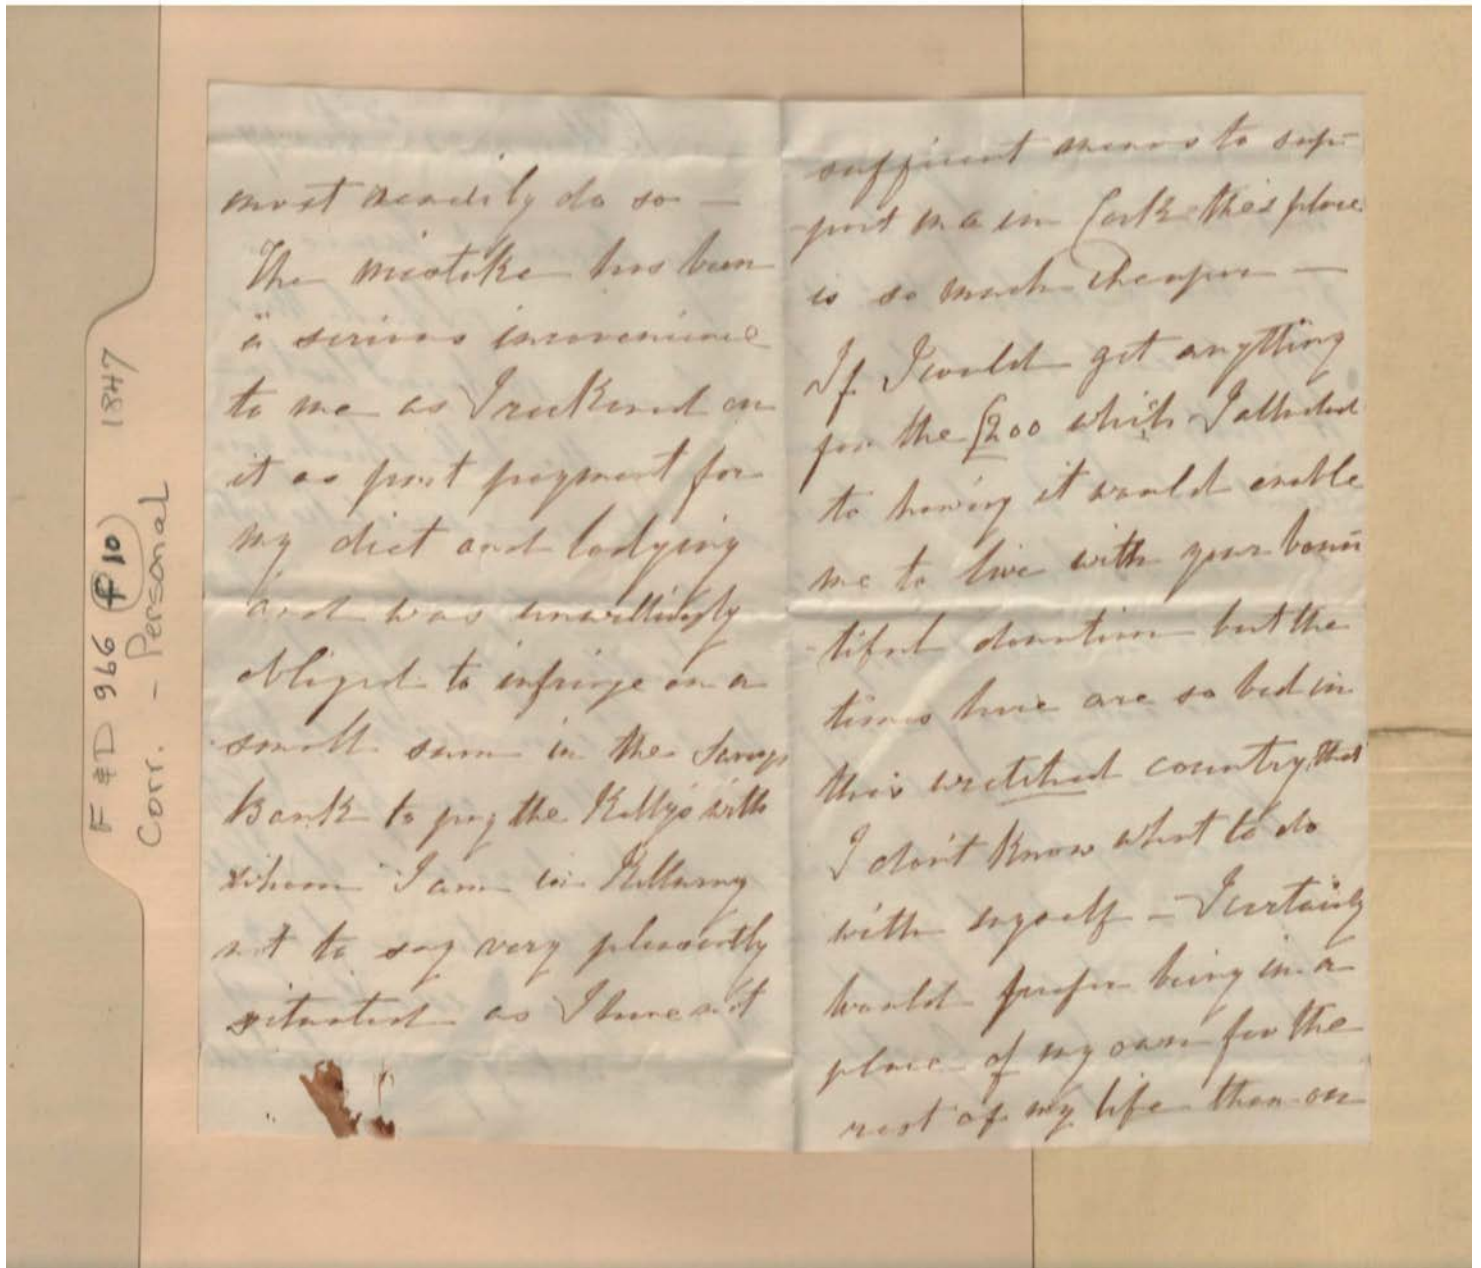 F & D 966 f10 1847
Corr. - Personal
most readily do so —
The mistake has been
a serious inconvenience
to me as I reckoned on
it as part payment for
my diet and lodging
and was unwillingly
obliged to infringe on a
small sum in the Savings
Bank to pay the Kellys with
whom I am in Killarney
not to say very pleasantly
situated as I have not
sufficient means to sup-
-port me in Cork this place
is so much cheaper —
If I could get anything
for the £200 which I alluded
to having it would enable
me to live with your boun
-tiful donation but the
times here are so bad in
this wretched country, that
I don't know what to do
with myself — I certainly
would prefer being in a
place of my own for the
rest of my life than on